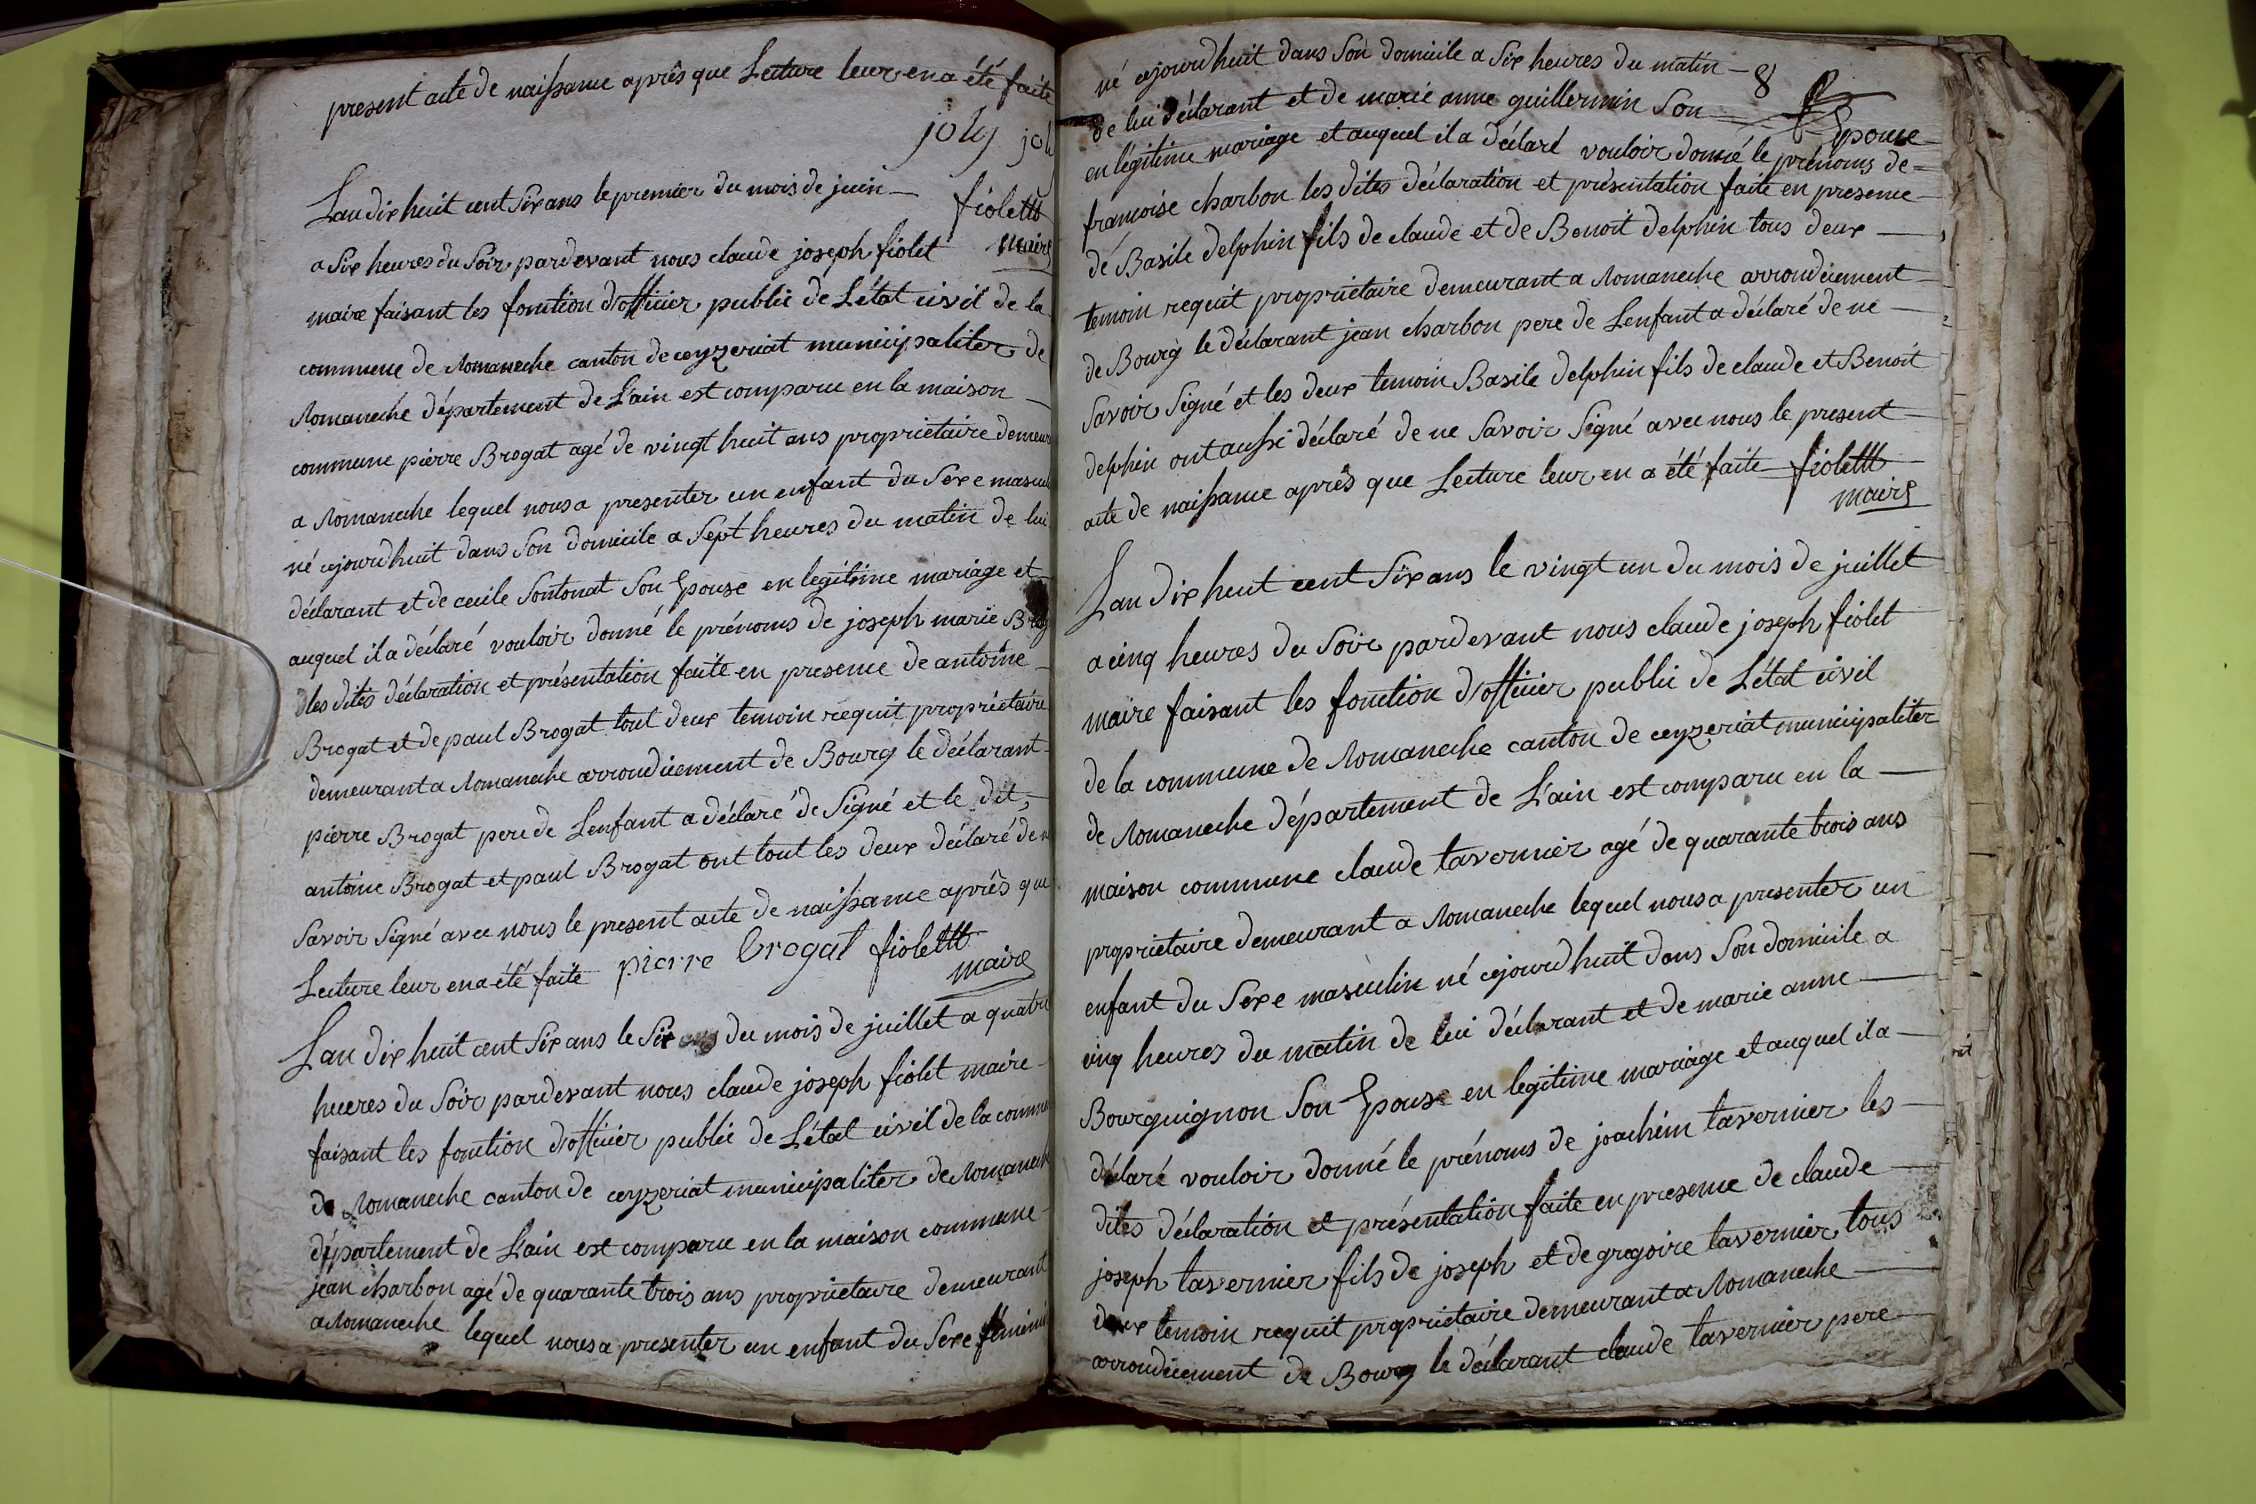 present acte de naissance après que Lecture leur en a été faite
joly jol
Lan dix huit cent Six ans le premier du mois de juin —
fiolet
a Six heures du Soir pardevant nous claude joseph fiolet
maire
maire faisant les fonction d'officier public de L'état civil de la
commune de Romaneche canton de ceyzeriat municipaliter de
Romaneche département de L'ain est comparu en la maison —
commune pierre Brogat agé de vingt huit ans propriétaire demeur
a Romaneche lequel nous a presenter un enfant du Sexe mascul
né cejourdhuit dans Son domicile a Sept heures du matin de lui
déclarant et de cecile Sontonat Son Epouse en legitime mariage et
auquel il a déclaré vouloir donné le prénoms de joseph marie Brog
les dites déclaration et présentation faite en presence de antoine
Brogat et de paul Brogat tout deux temoin requit propriétaire
demeurant a Romaneche arrondicement de Bourg le déclarant
pierre Brogat pere de Lenfant a déclaré de Signé et le dit
antoine Brogat et paul Brogat ont tout les deux déclaré de n
Savoir Signé avec nous le present acte de naissance après que
Lecture leur en a été faite pierre brogat fiolet
maire
Lan dix huit cent Six ans le Six du mois de juillet a quatre
hueres du Soir pardevant nous claude joseph fiolet maire
faisant les fonction d'officier public de L'état civil de la commu
de Romaneche canton de ceyzeriat municipaliter de Romanech
département de L'ain est comparu en la maison commune
jean charbon agé de quarante trois ans propriétaire demeurant
a Romaneche lequel nous a presenter un enfant du Sexe féminin
né cejourdhuit dans Son domicile a Six heures du matin — 8
de lui déclarant et de marie anne guillermin Son Epouse
en légitime mariage et auquel il a déclaré vouloir donné le prénoms de
francoise charbon les dites déclaration et présentation faite en presence
de Basile delphin fils de claude et de Benoit delphin tous deux —
temoin requit propriétaire demeurant a Romaneche arrondicement
de Bourg le déclarant jean charbon pere de Lenfant a déclaré de ne —
Savoir Signé et les deux temoin Basile delphin fils de claude et Benoit
delphin ont aussi déclaré de ne Savoir Signé avec nous le present
acte de naissance après que Lecture leur en a été faite fiolet
maire
Lan dix huit cent Six ans le vingt un du mois de juillet
a cinq heures du Soir pardevant nous claude joseph fiolet
maire faisant les fonction d'officier public de L'état civil
de la commune de Romaneche canton de ceyzeriat municipaliter
de Romaneche département de L'ain est comparu en la —
maison commune claude tavernier agé de quarante trois ans
propriétaire demeurant a Romaneche lequel nous a presenter un
enfant du Sexe masculin né cejourdhuit dans Son domicile a
cinq heures du matin de lui déclarant et de marie anne —
Bourguignon Son Epouse en legitime mariage et auquel il a —
déclaré vouloir donné le prénoms de joachim tavernier les —
dites déclaration et présentation faite en presence de claude —
joseph tavernier fils de joseph et de gregoire tavernier tous
deux temoin requit propriétaire demeurant a Romaneche —
arrondicement de Bourg le déclarant claude tavernier pere —